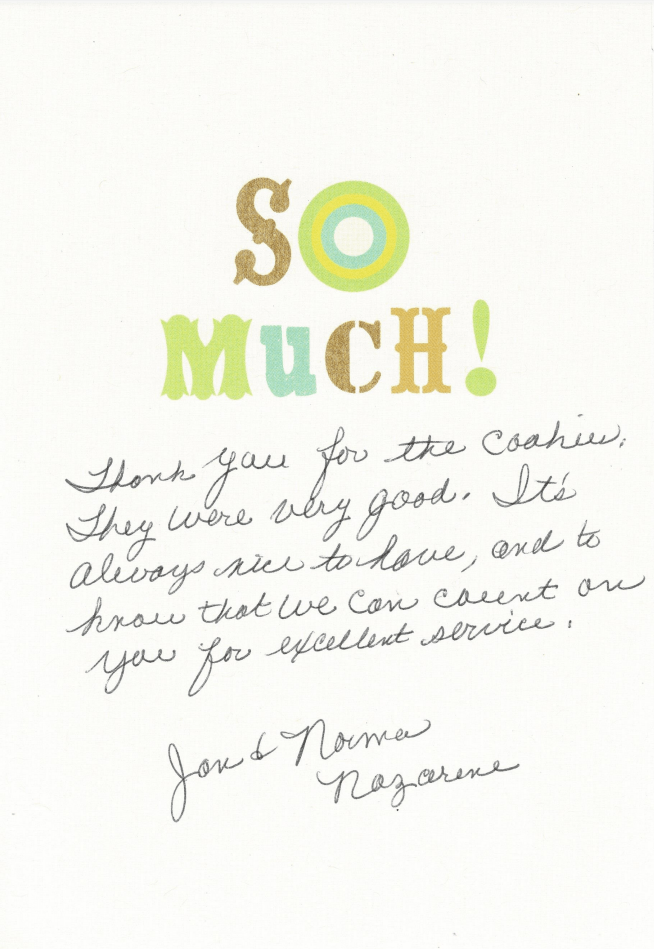 SO
MUCH!
Thank you for the cookies.
They were very good. It's
always nice to have, and to
know that we can count on
you for excellent service.
Jon & Norma
Nazarene